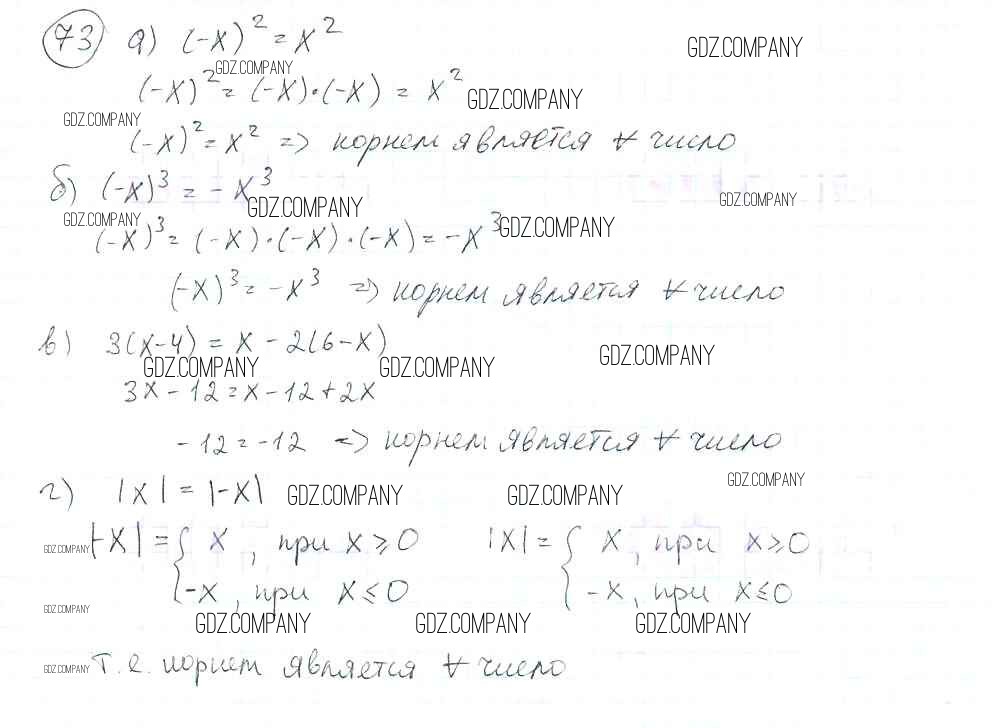 73 а) (-x)² = x² GDZ.COMPANY
GDZ.COMPANY
(-x)² = (-x)·(-x) = x² GDZ.COMPANY
GDZ.COMPANY
(-x)² = x² => корнем является ∀ число
б) (-x)³ = -x³ GDZ.COMPANY
GDZ.COMPANY GDZ.COMPANY GDZ.COMPANY
(-x)³ = (-x)·(-x)·(-x) = -x³
(-x)³ = -x³ => корнем является ∀ число
в) 3(x-4) = x - 2(6-x)
GDZ.COMPANY GDZ.COMPANY GDZ.COMPANY
3x - 12 = x - 12 + 2x
-12 = -12 => корнем является ∀ число
г) |x| = |-x| GDZ.COMPANY GDZ.COMPANY GDZ.COMPANY
GDZ.COMPANY |-x| = { x, при x ≥ 0 |x| = { x, при x ≥ 0
-x, при x ≤ 0 -x, при x ≤ 0
GDZ.COMPANY
GDZ.COMPANY GDZ.COMPANY GDZ.COMPANY
GDZ.COMPANY т.е. корнем является ∀ число